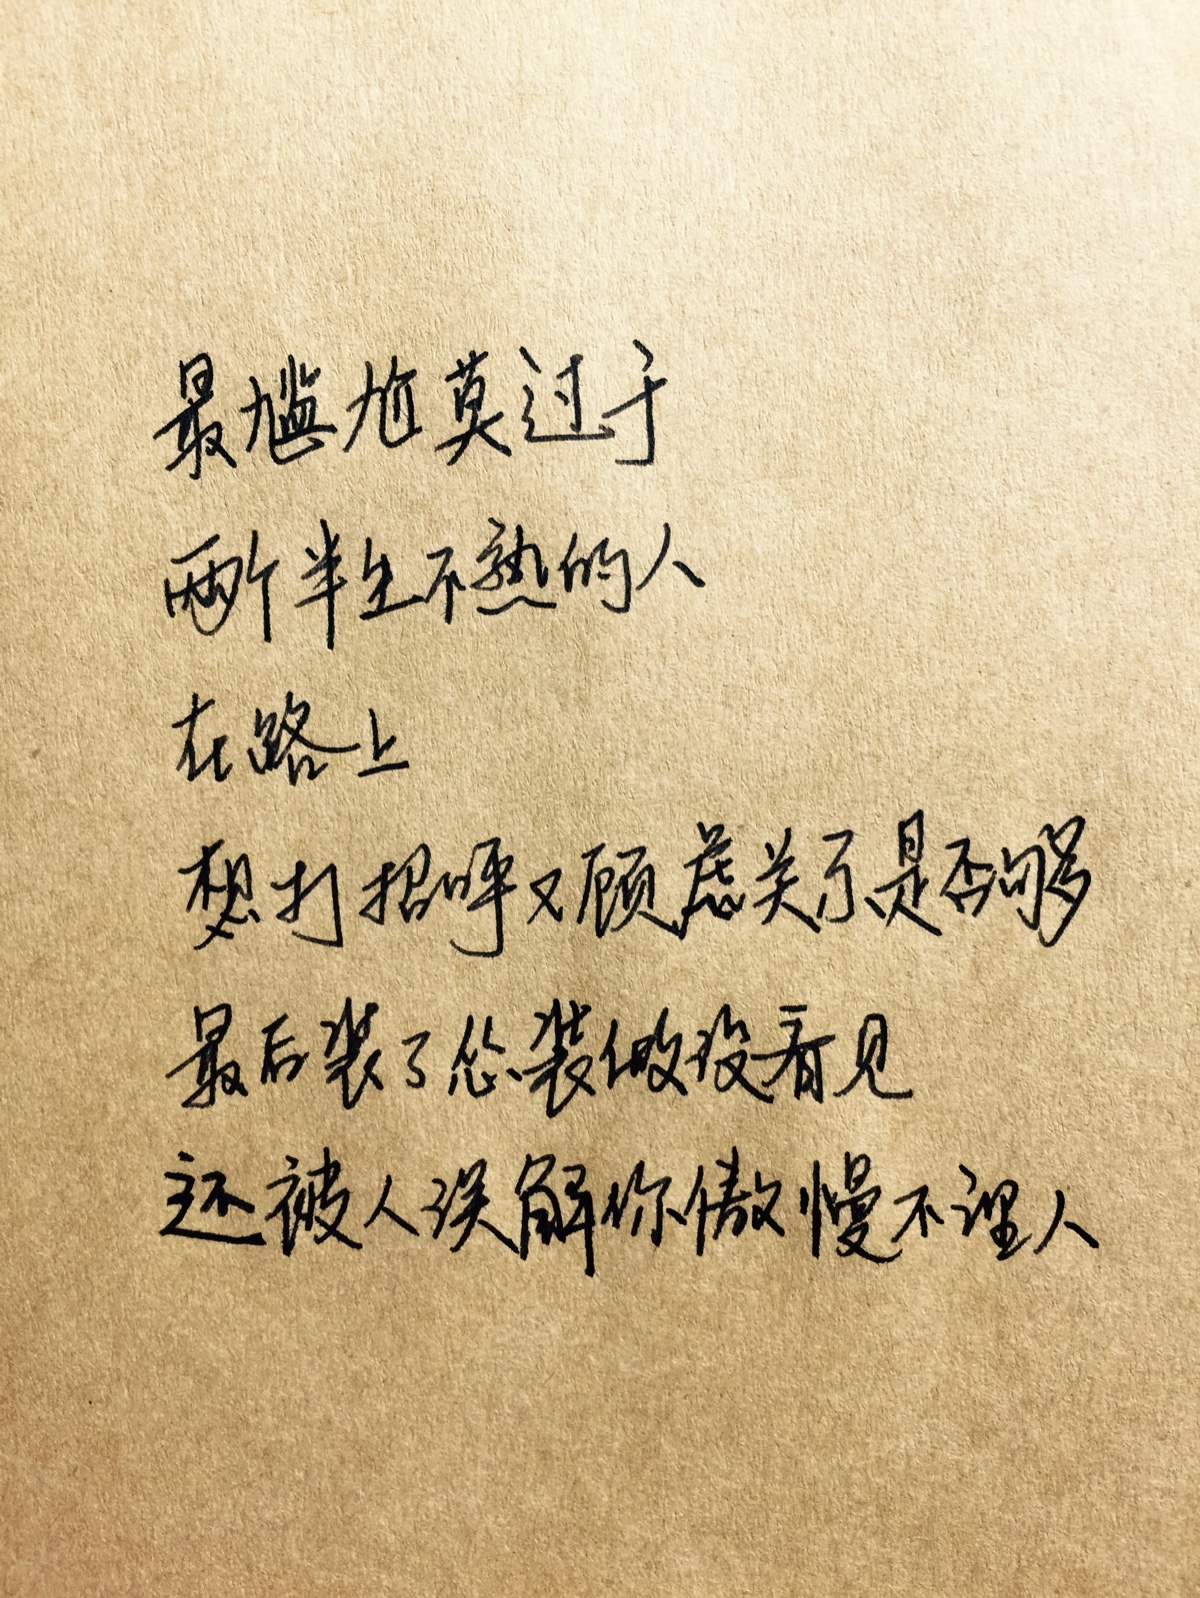 最尴尬莫过于
两个半生不熟的人
在路上
想打招呼又顾虑关了是否够
最后装了怂装做没看见
还被人误解你傲慢不理人